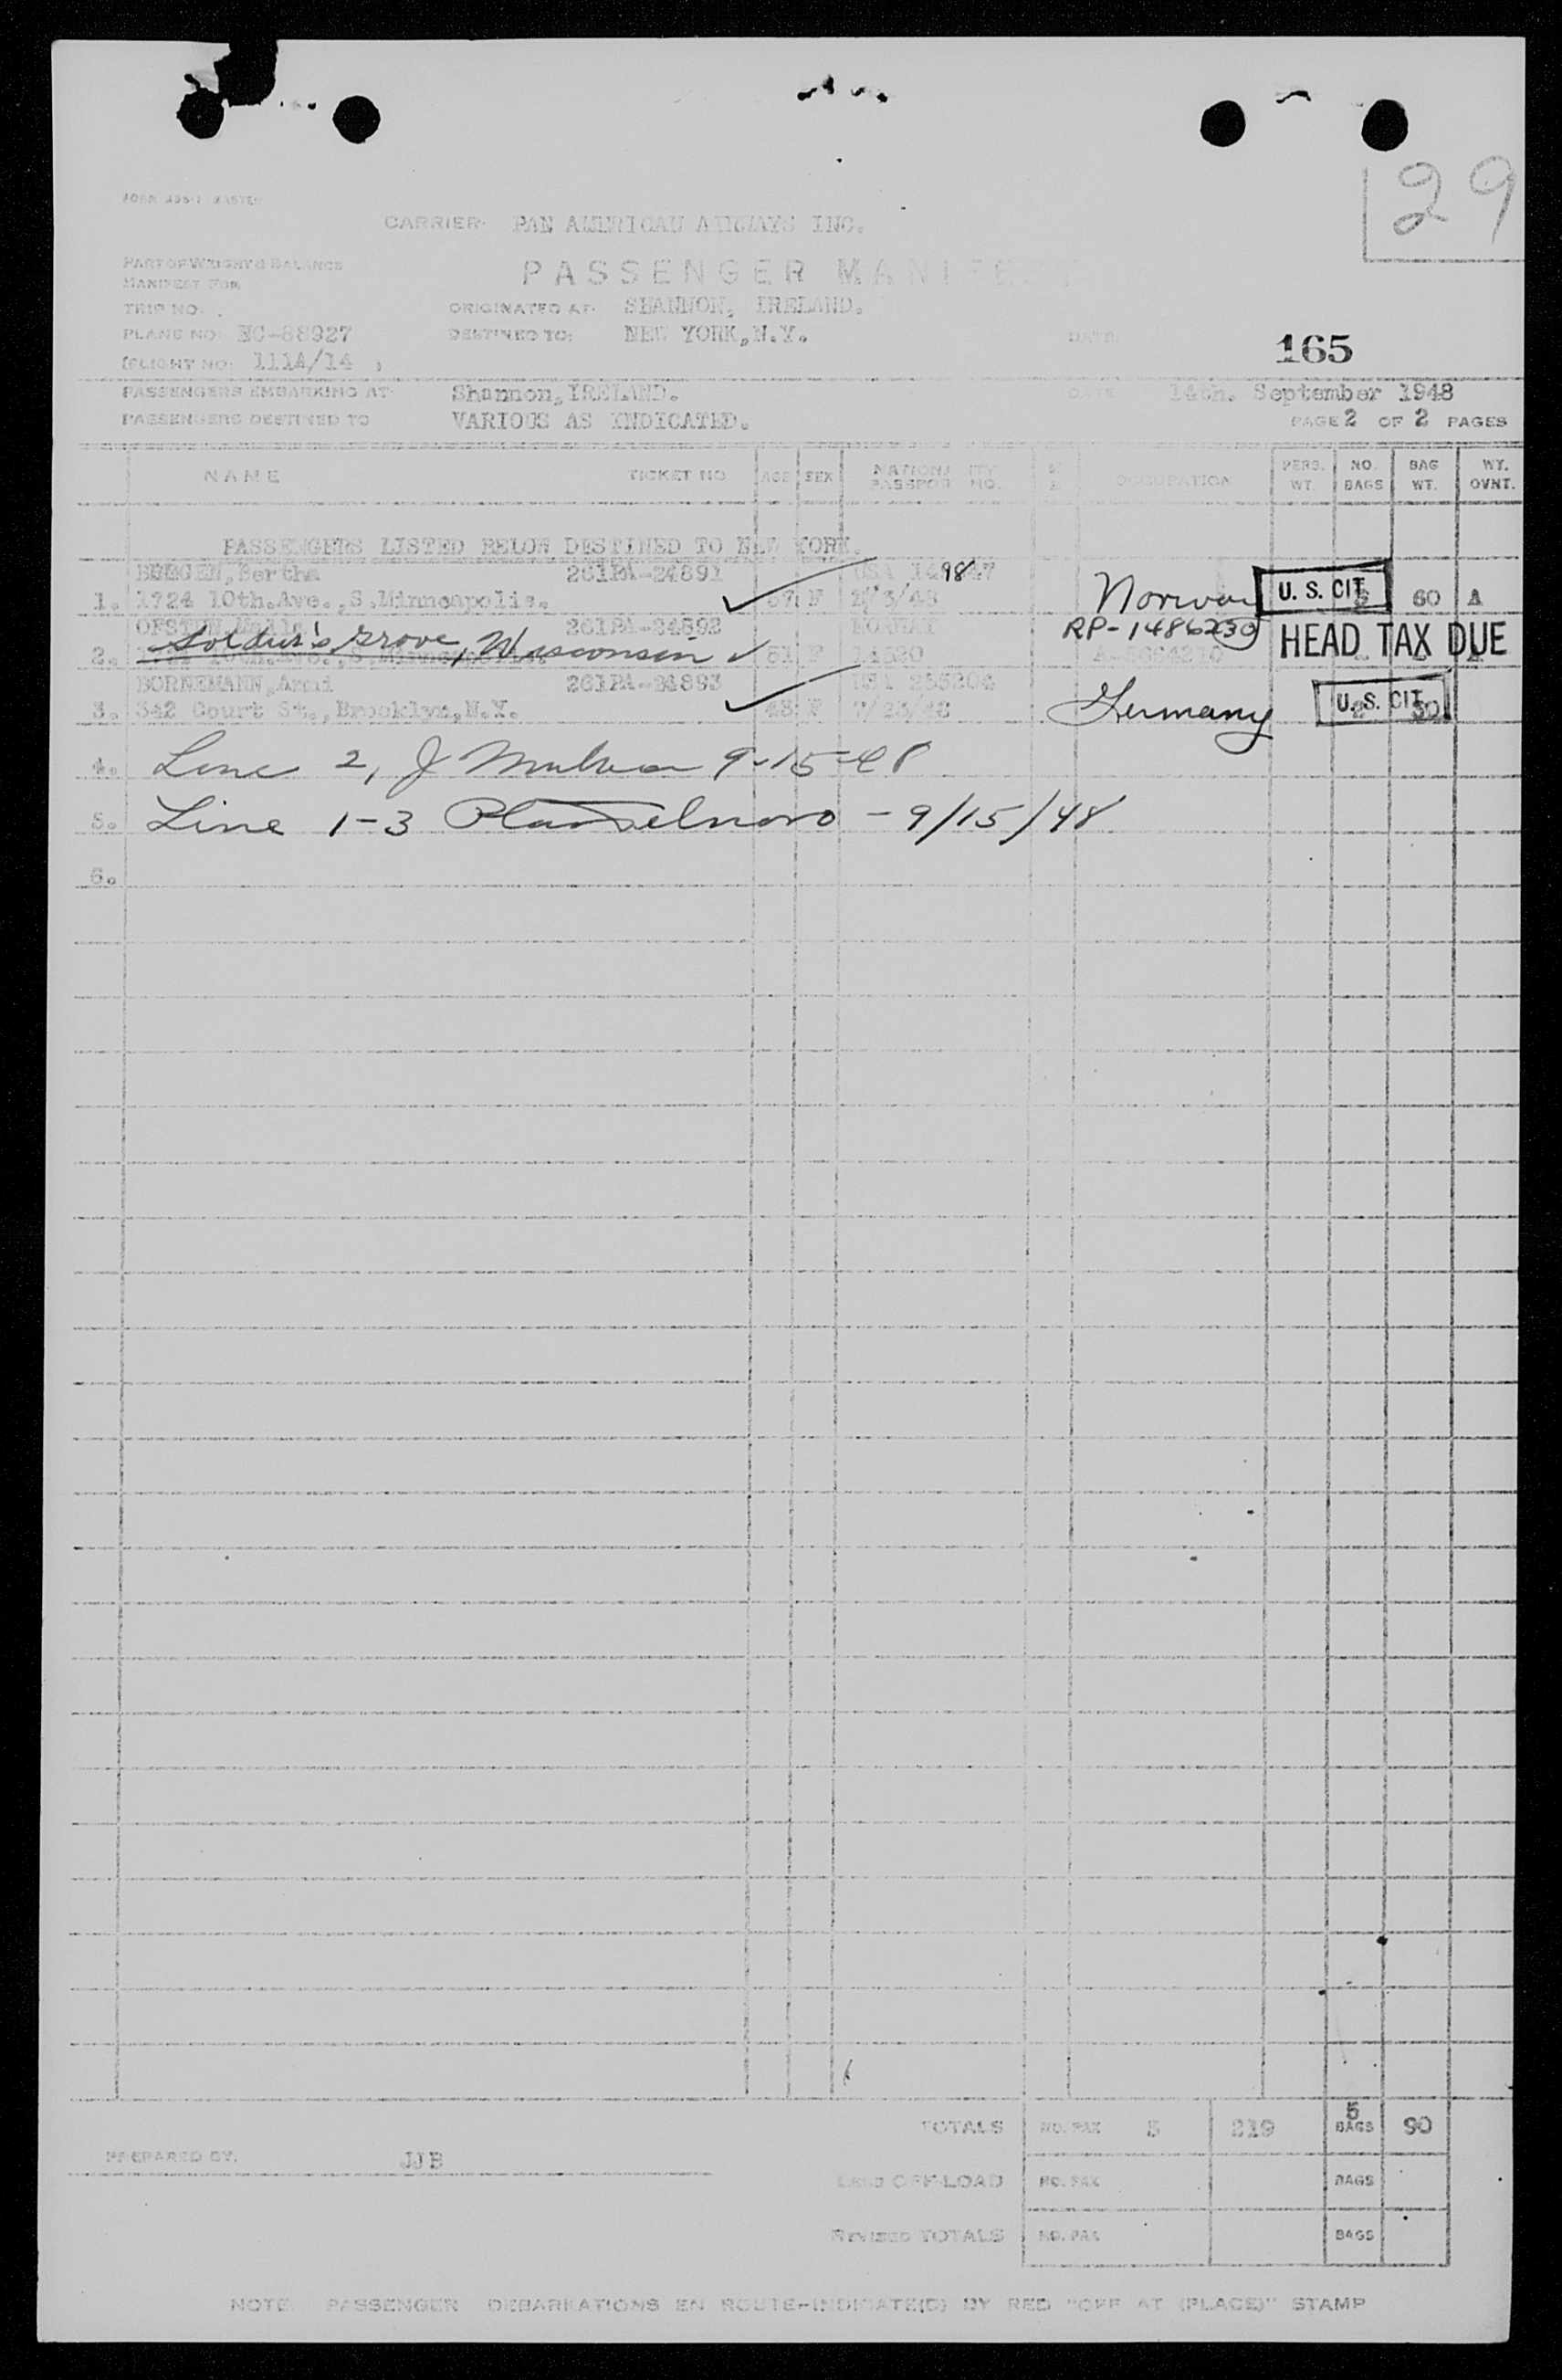 29
CARRIER: PAN AMERICAN AIRWAYS INC.
PART OF WEIGHT & BALANCE
MANIFEST FOR
PASSENGER MANIFE
TRIP NO.
ORIGINATED AT: SHANNON, IRELAND.
PLANE NO: NC-88927
DESTINED TO: NEW YORK, N.Y.
DATE
165
FLIGHT NO: 111A/14
PASSENGERS EMBARKING AT Shannon, IRELAND.
DATE 14th. September 1948
PASSENGERS DESTINED TO VARIOUS AS INDICATED.
PAGE 2 OF 2 PAGES
NAME TICKET NO AGE SEX OCCUPATION PERS. WT. NO. BAGS BAG WT. WT. OVNT.
PASSENGERS LISTED BELOW DESTINED TO NEW YORK.
Bertha 261PA-24891 USA
1. 1724 10th.Ave.,S.Minneapolis. F Norway U. S. CIT. 60 A
261PA-24892 NORWAY RP-1486230 HEAD TAX DUE
2. Soldier's Grove, Wisconsin F
BORNEMANN, 261PA-24893 USA
3. 342 Court St., Brooklyn, N.Y. F Germany U. S. CIT. 30
4. Line 2, J 9-15-48
5. Line 1-3 - 9/15/48
6.
TOTALS NO. PAX 219 5 BAGS 90
PREPARED BY: JJB
OFF-LOAD NO. PAX BAGS
REVISED TOTALS NO. PAX BAGS
NOTE PASSENGER DEBARKATIONS EN ROUTE-INDICATE(D) BY RED "OFF AT (PLACE)" STAMP